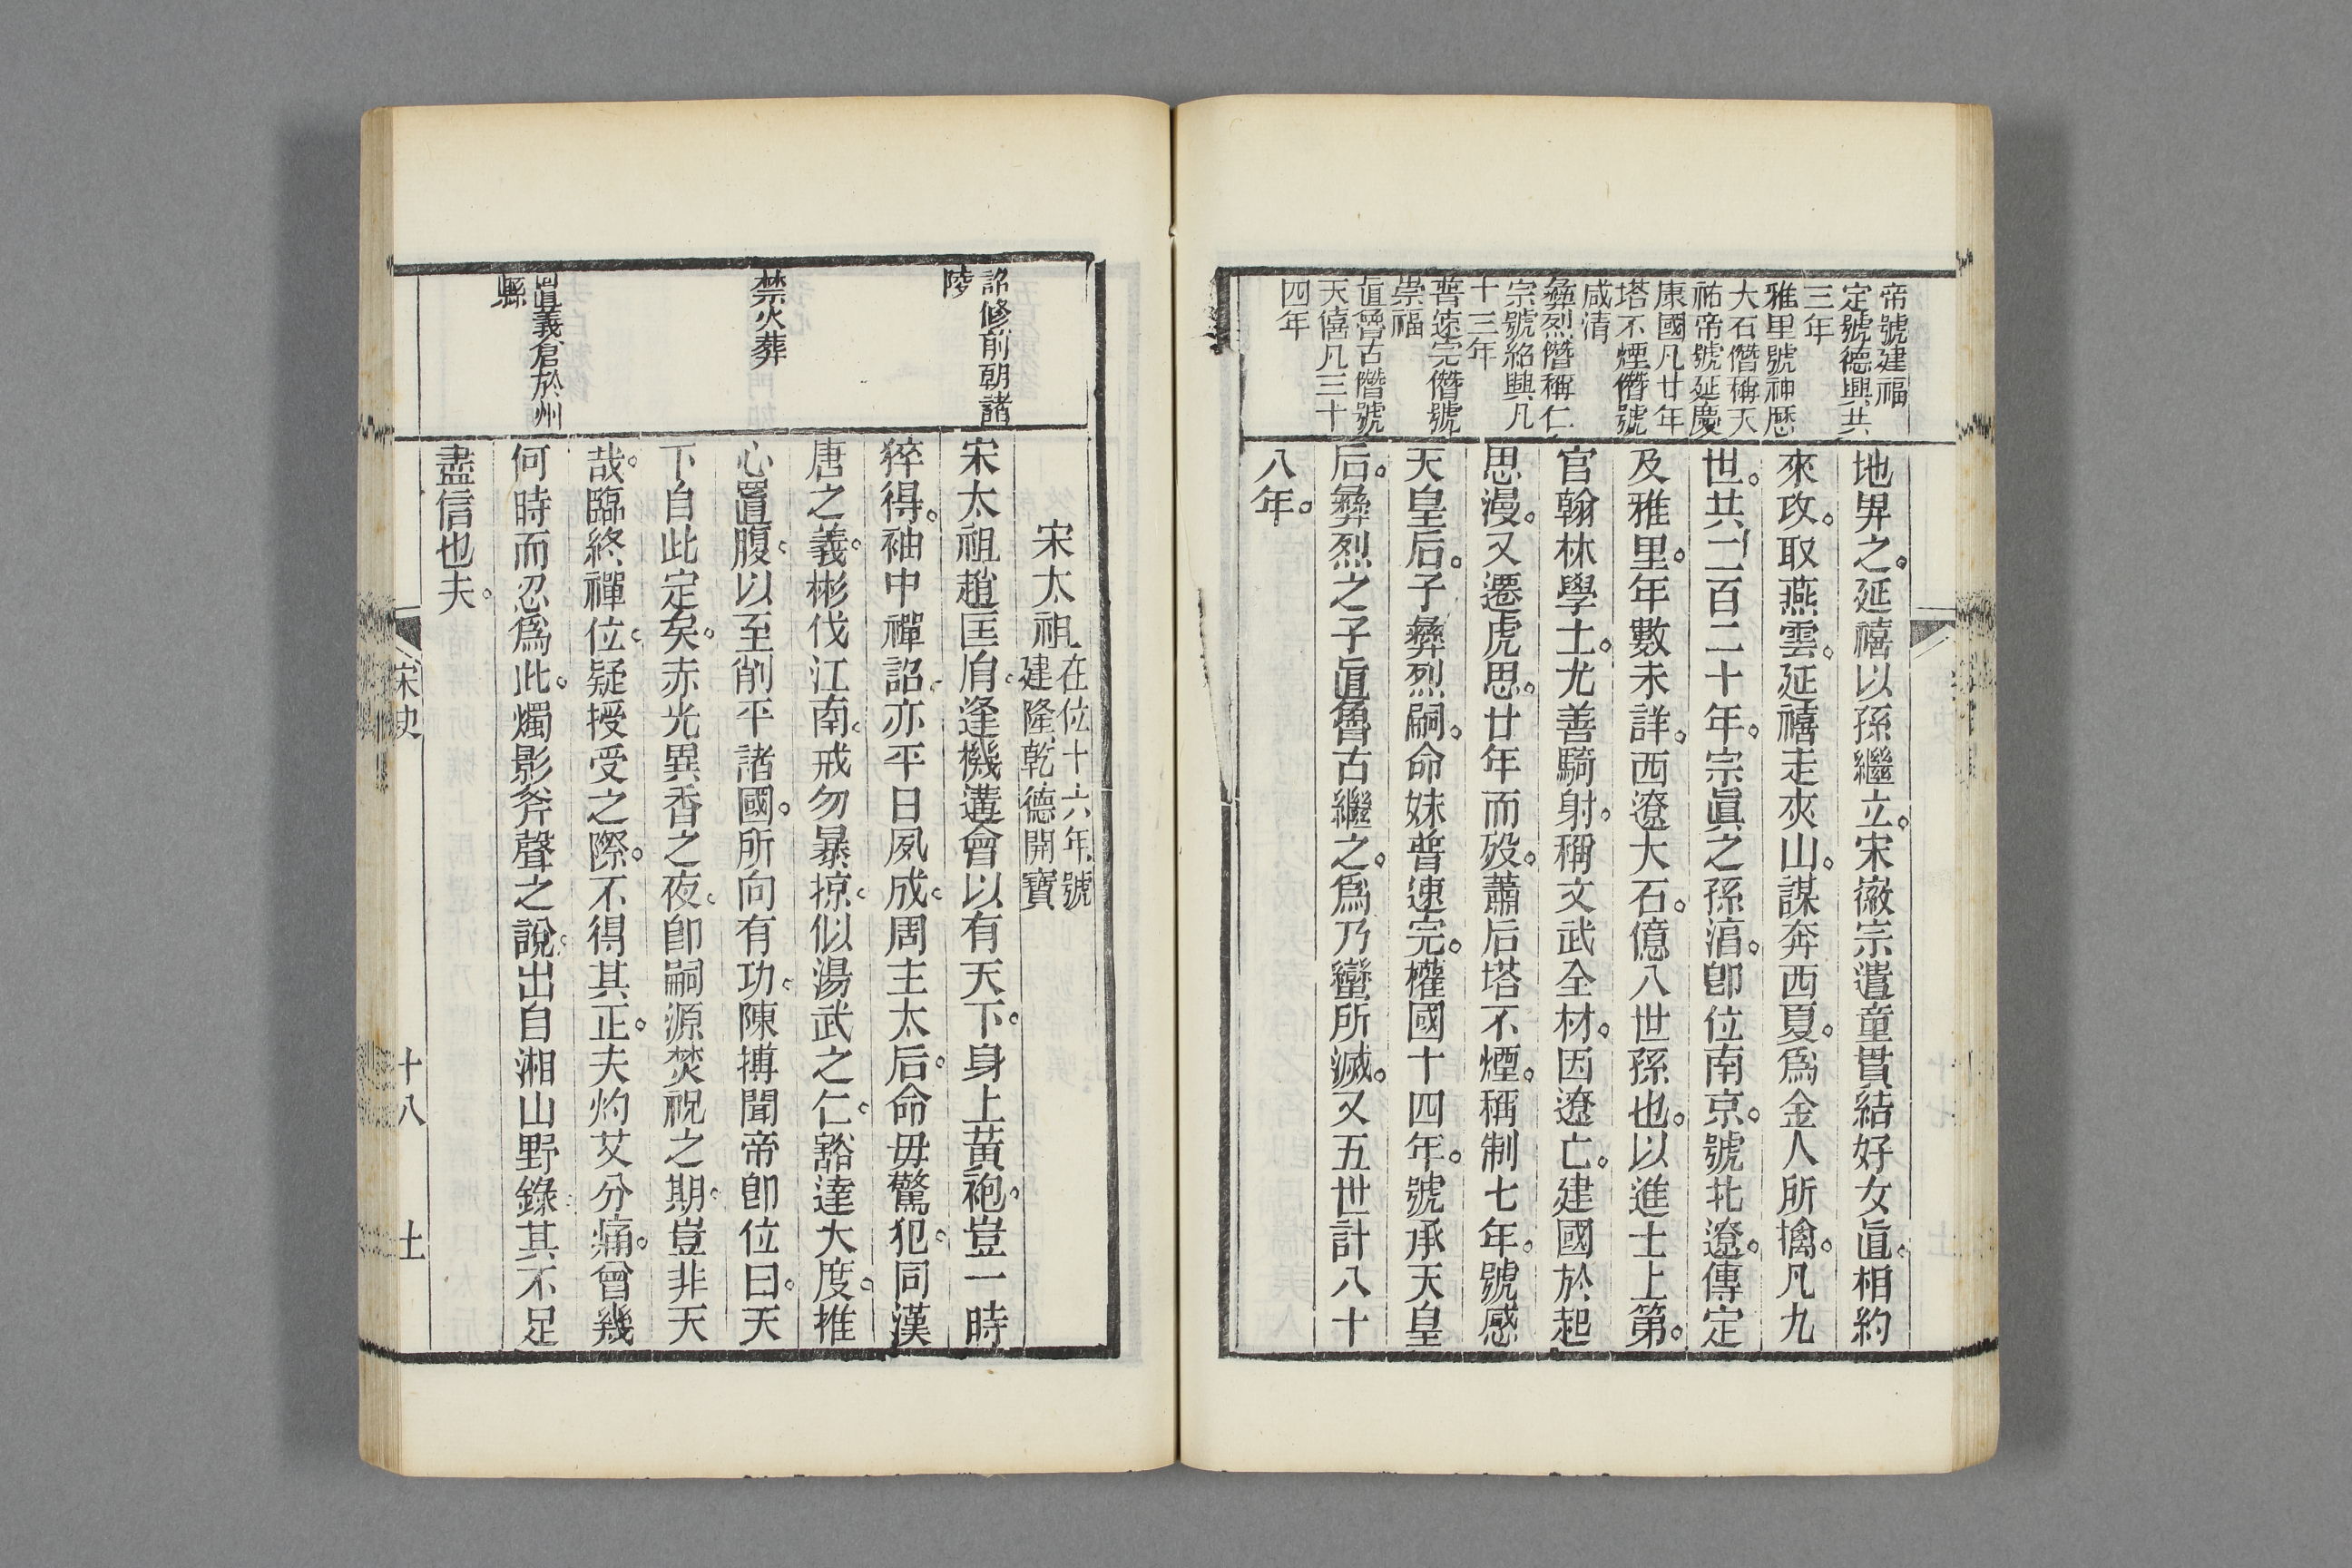 帝號建福
定號德興共
三年
雅里號神歷
大石僭稱天
祐帝號延慶
康國凡廿年
塔不煙僭號
咸清
彝烈僭稱仁
宗號紹興凡
十三年
普速完僭號
崇福
眞魯古僭號
天僖凡三十
四年
地畀之。延禧以孫繼立。宋徽宗遣童貫結好女眞。相約
來攻。取燕雲。延禧走夾山。謀奔西夏。爲金人所擒。凡九
世。共二百二十年。宗眞之孫涓。卽位南京。號北遼。傳定
及雅里。年數未詳。西遼大石。億八世孫也。以進士上第。
官翰林學士。尤善騎射。稱文武全材。因遼亡。建國於起
思漫。又遷虎思。廿年而歿。蕭后塔不煙。稱制七年。號感
天皇后。子彝烈嗣。命妹普速完。權國十四年。號承天皇
后。彝烈之子眞魯古繼之。爲乃蠻所滅。又五世計八十
八年。
詔修前朝諸
陵
禁火葬
置義倉於州
縣
宋太祖
在位十六年號
建隆乾德開寶
宋太祖趙匡胤。逢機遘會以有天下。身上黃袍。豈一時
猝得。袖中禪詔。亦平日夙成。周主太后。命毋驚犯。同漢
唐之義。彬伐江南。戒勿暴掠。似湯武之仁。豁達大度。推
心置腹。以至削平諸國。所向有功。陳搏聞帝卽位曰。天
下自此定矣。赤光異香之夜。卽嗣源焚祝之期。豈非天
哉。臨終禪位。疑授受之際。不得其正。夫灼艾分痛。曾幾
何時而忍爲此。燭影斧聲之說。出自湘山野錄。其不足
盡信也夫。
宋史
十八
土